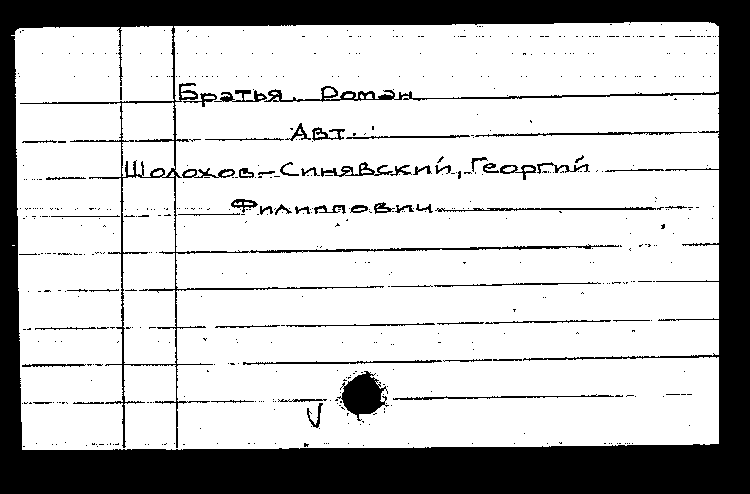 Братья. Роман.
Авт.:
Шолохов-Синявский, Георгий
Филиппович.
V